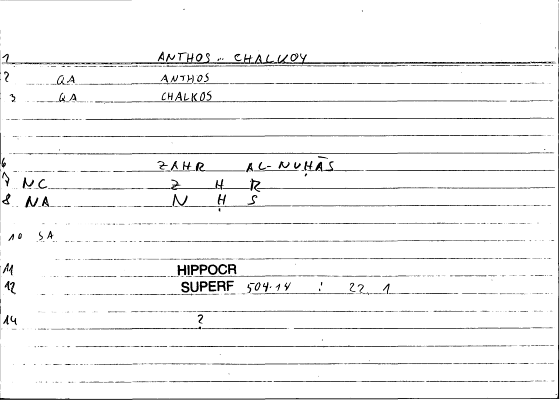 1 ANTHOS - CHALKOY
2 QA ANTHOS
3 QA CHALKOS
6 ZAHR AL-NUḤĀS
7 NC Z H R
8 NA N Ḥ S
10 SA
11 HIPPOCR
12 SUPERF 504.14 : 22 1
14 ?